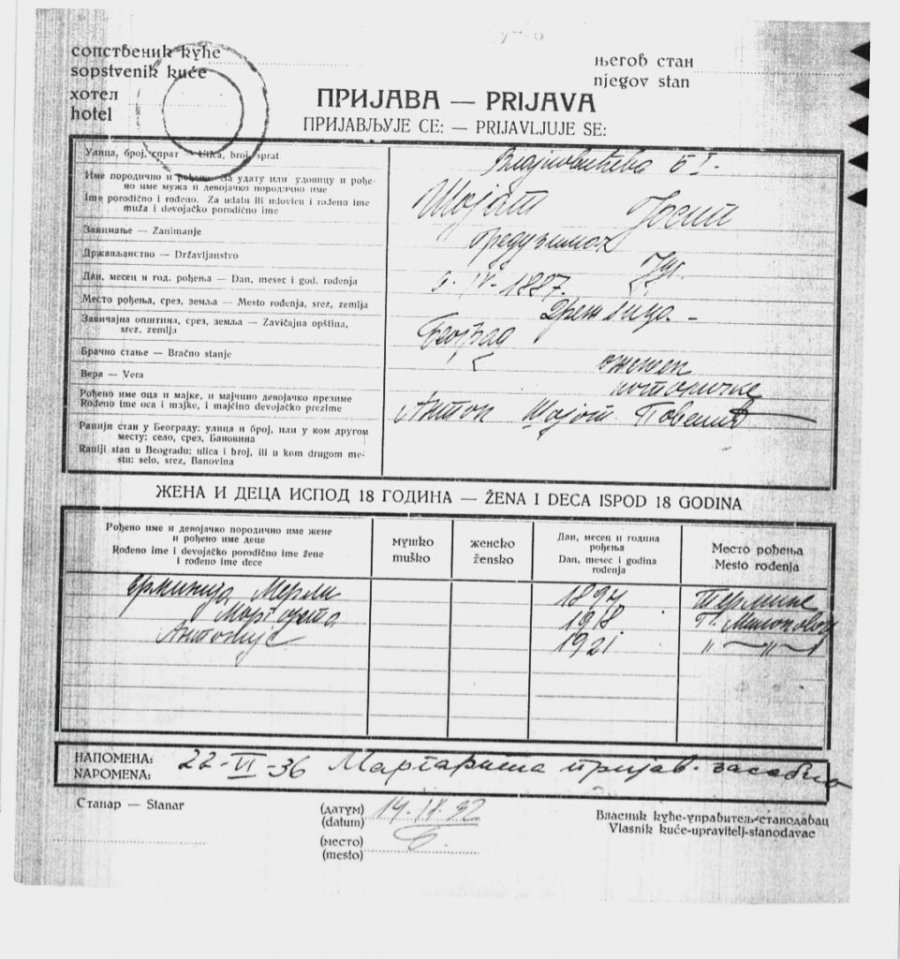 сопственик куће
sopstvenik kuće
његов стан
njegov stan
хотел
hotel
ПРИЈАВА — PRIJAVA
ПРИЈАВЉУЈЕ СЕ: — PRIJAVLJUJE SE:
Улица, број, спрат — Ulica, broj, sprat
Име породично и рођено. За удату или удовицу и рође-
но име мужа и девојачко породично име
Ime porodično i rođeno. Za udatu ili udovicu i rođeno ime
muža i devojačko porodično ime
Шојат Јосип
Занимање — Zanimanje
предузимач
Држављанство — Državljanstvo
Југ.
Дан, месец и год. рођења — Dan, mesec i god. rođenja
5-IV-1887.
Место рођења, срез, земља — Mesto rođenja, srez, zemlja
Завичајна општина, срез, земља — Zavičajna opština,
srez, zemlja
Београд
Брачно стање — Bračno stanje
ожењен
Вера — Vera
Рођено име оца и мајке, и мајчино девојачко презиме
Rođeno ime oca i majke, i majčino devojačko prezime
Антон Шојат
Ранији стан у Београду: улица и број, или у ком другом
месту: село, срез, Бановина
Raniji stan u Beogradu: ulica i broj, ili u kom drugom me-
stu: selo, srez, Banovina
ЖЕНА И ДЕЦА ИСПОД 18 ГОДИНА — ŽENA I DECA ISPOD 18 GODINA
Рођено име и девојачко породично име жене
и рођено име деце
Rođeno ime i devojačko porodično ime žene
i rođeno ime dece
мушко
muško
женско
žensko
Дан, месец и година
рођења
Dan, mesec i godina
rođenja
Место рођења
Mesto rođenja
Ерминија Мерли 1894
Маргарета 1918
Антонија 1921 " "
НАПОМЕНА:
NAPOMENA:
22-VI-36 Маргарита пријав. засебно
Станар — Stanar
(датум)
(datum)
(место)
(mesto)
Власник куће-управитељ-станодавац
Vlasnik kuće-upravitelj-stanodavac